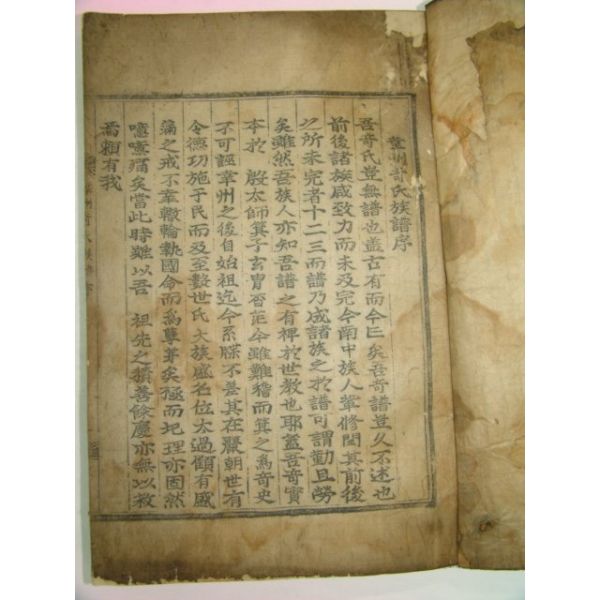 幸州奇氏族譜序
吾奇氏豈無譜也盖古有而今亡矣吾奇譜豈久不述也
前後諸族咸致力而未及完今南中族人輩修閱其前後
之所未完者十二三而譜乃成諸族之於譜可謂勤且勞
矣雖然吾族人亦知吾譜之有裨於世敎也耶盖吾奇實
本於 殷太師箕子玄冑否茫今雖難稽而箕之爲奇史
不可誣幸州之後自始祖迄今系牒不差其在麗朝世有
令德功施于民而及至數世氏大族盛名位太過顧有盛
滿之戒不幸轍輪執國命而爲孼芽矣極而圮理亦固然
噫嘻痛矣當此時難以吾 祖先之積善餘慶亦無以救
焉賴有我